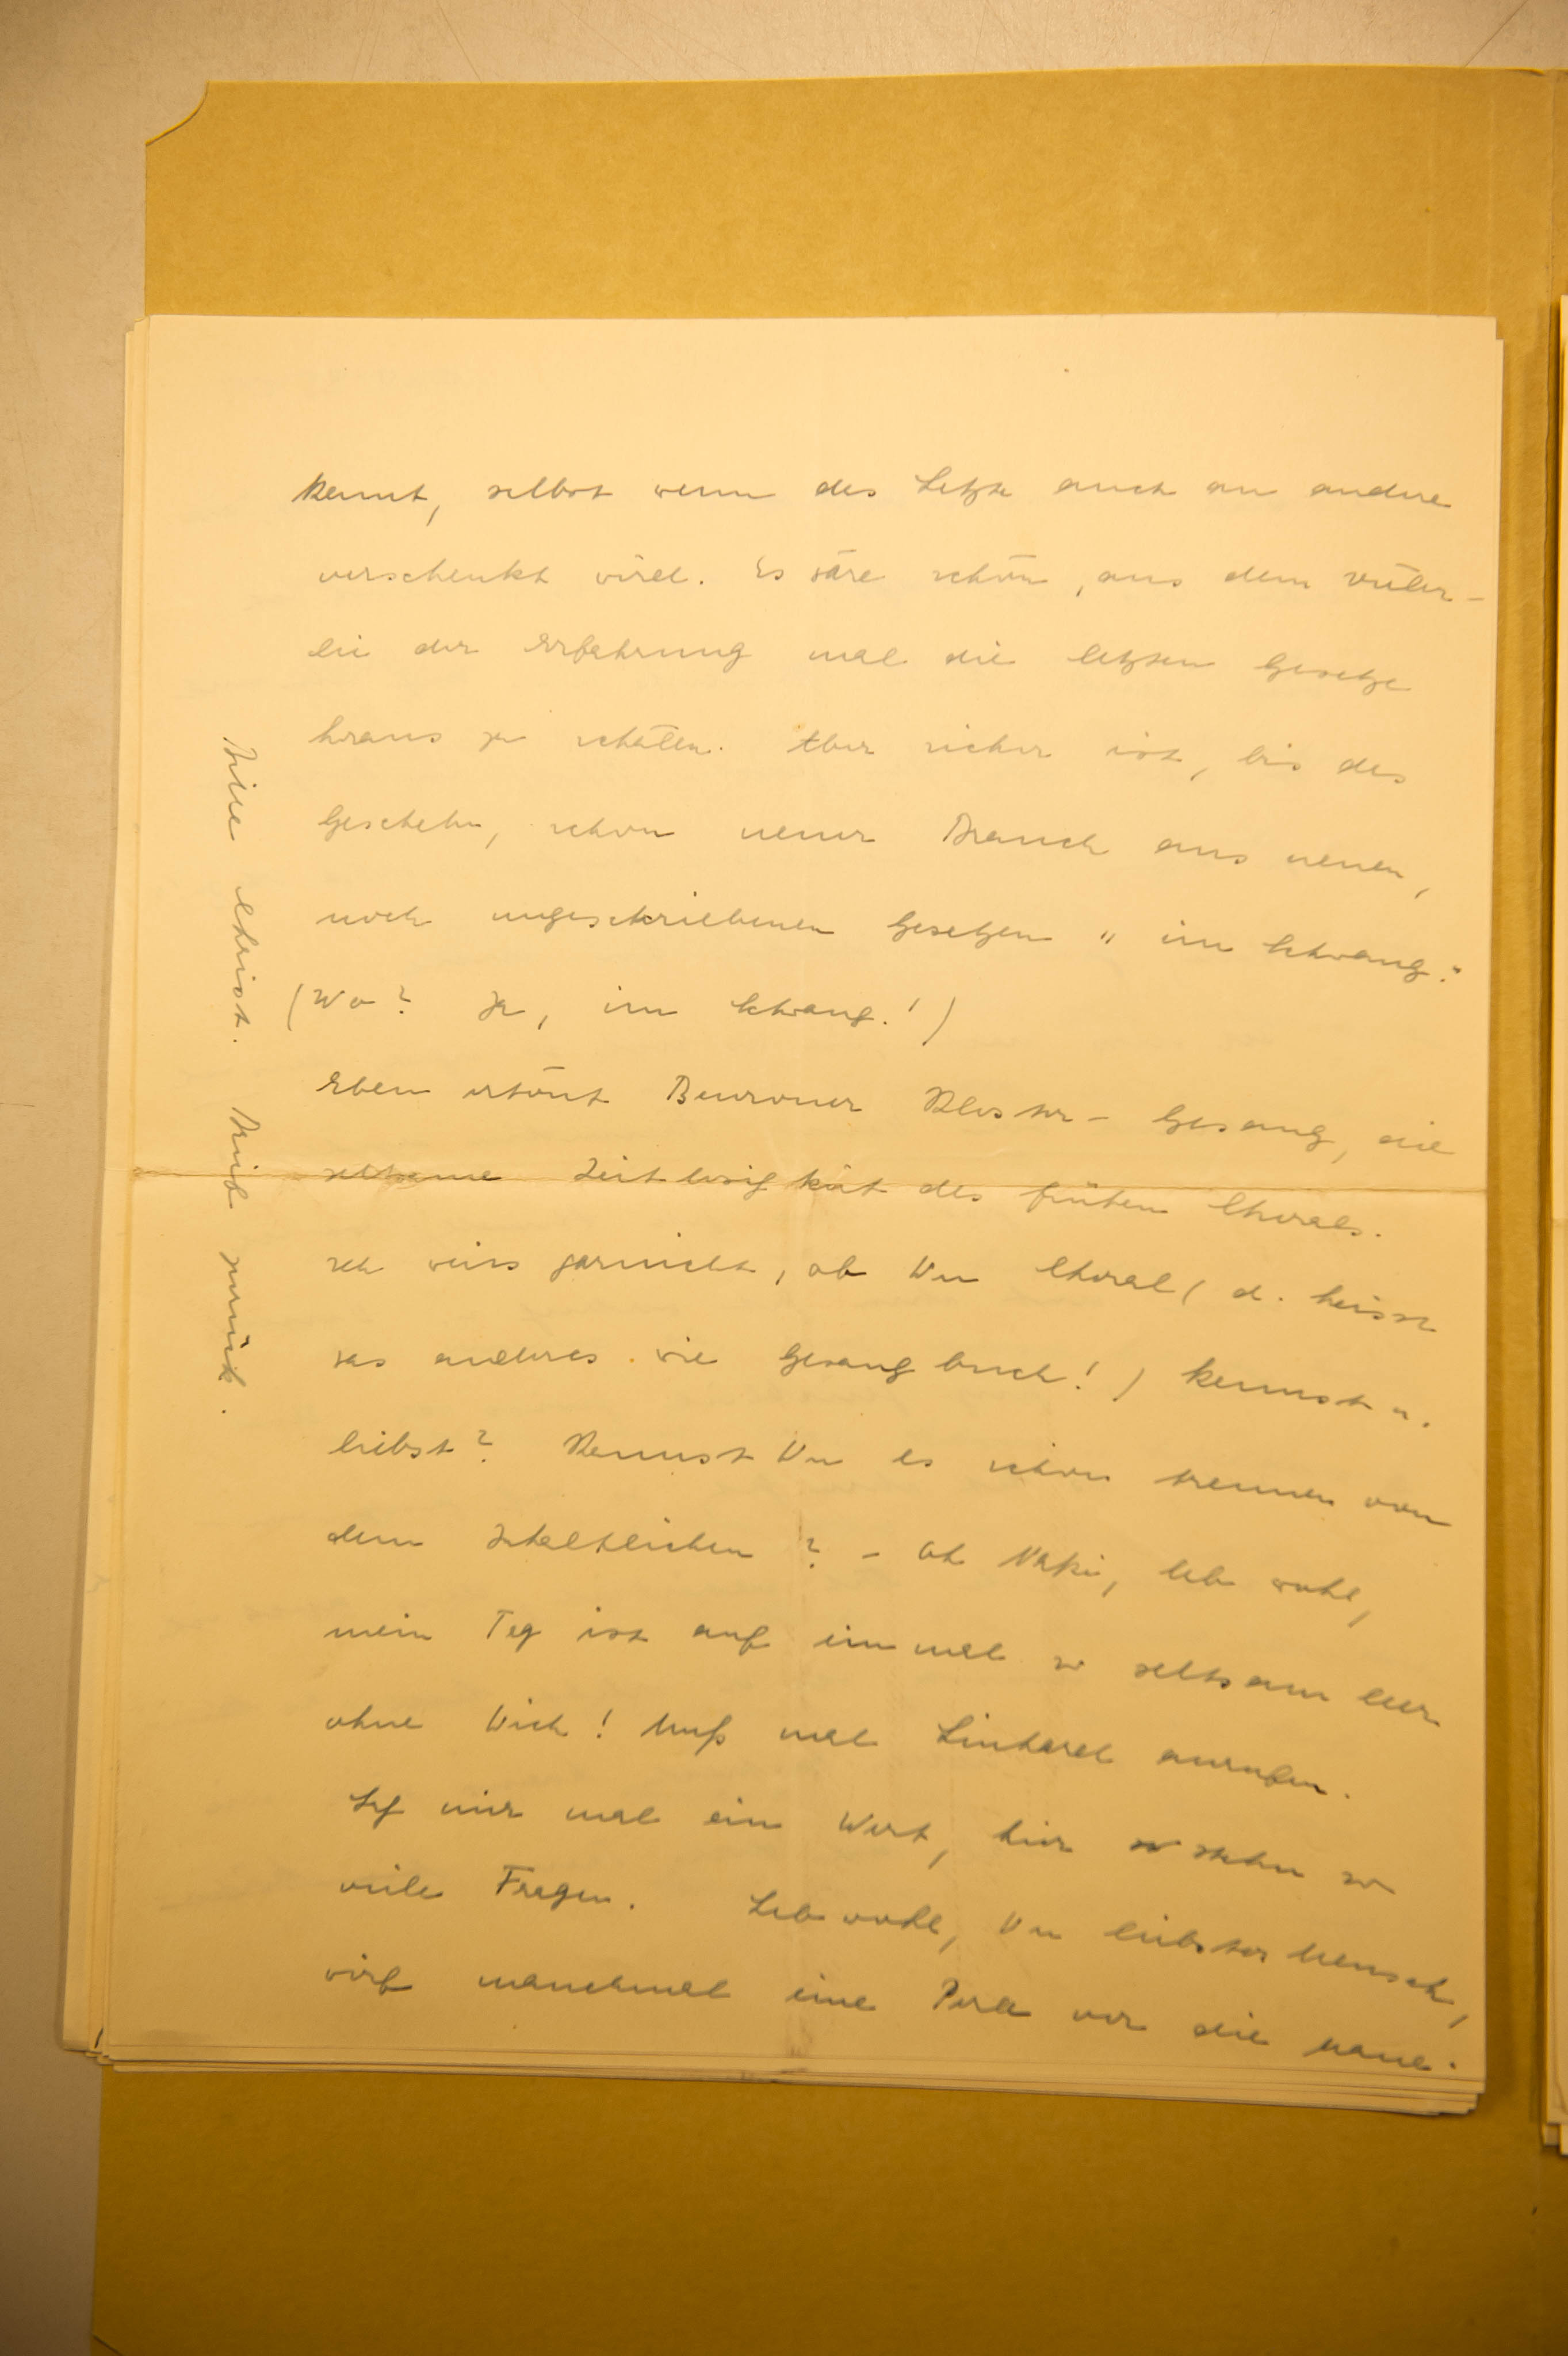 kennt, selbst wenn das Letzte auch an andere
verschenkt wird. Es wäre schön, aus dem Vieler-
lei der Erfahrung mal die letzten Gesetze
heraus zu schälen. Aber sicher ist, bis das
Geschehn, schon neuer Brauch aus neuen,
noch ungeschriebenen Gesetzen „im Schwang."
(Wo? Ja, im Schwang!)
Eben ertönt Beuroner Kloster-Gesang, die
seltsame Zeitlosigkeit des frühen Chorals.
Ich weiss garnicht, ob Du Choral (d. heisst
was anderes wie Gesangbuch!) kennst u.
liebst? Kannst Du es schon trennen von
dem Inhaltlichen? – Oh, leb wohl,
mein Tag ist auf einmal so seltsam leer
ohne Dich! Muß mal anrufen.
Sag mir mal ein Wort, hier stehn so
viele Fragen. Leb wohl, Du liebster Mensch,
wirf manchmal eine Perle vor die
Christ. zurück.